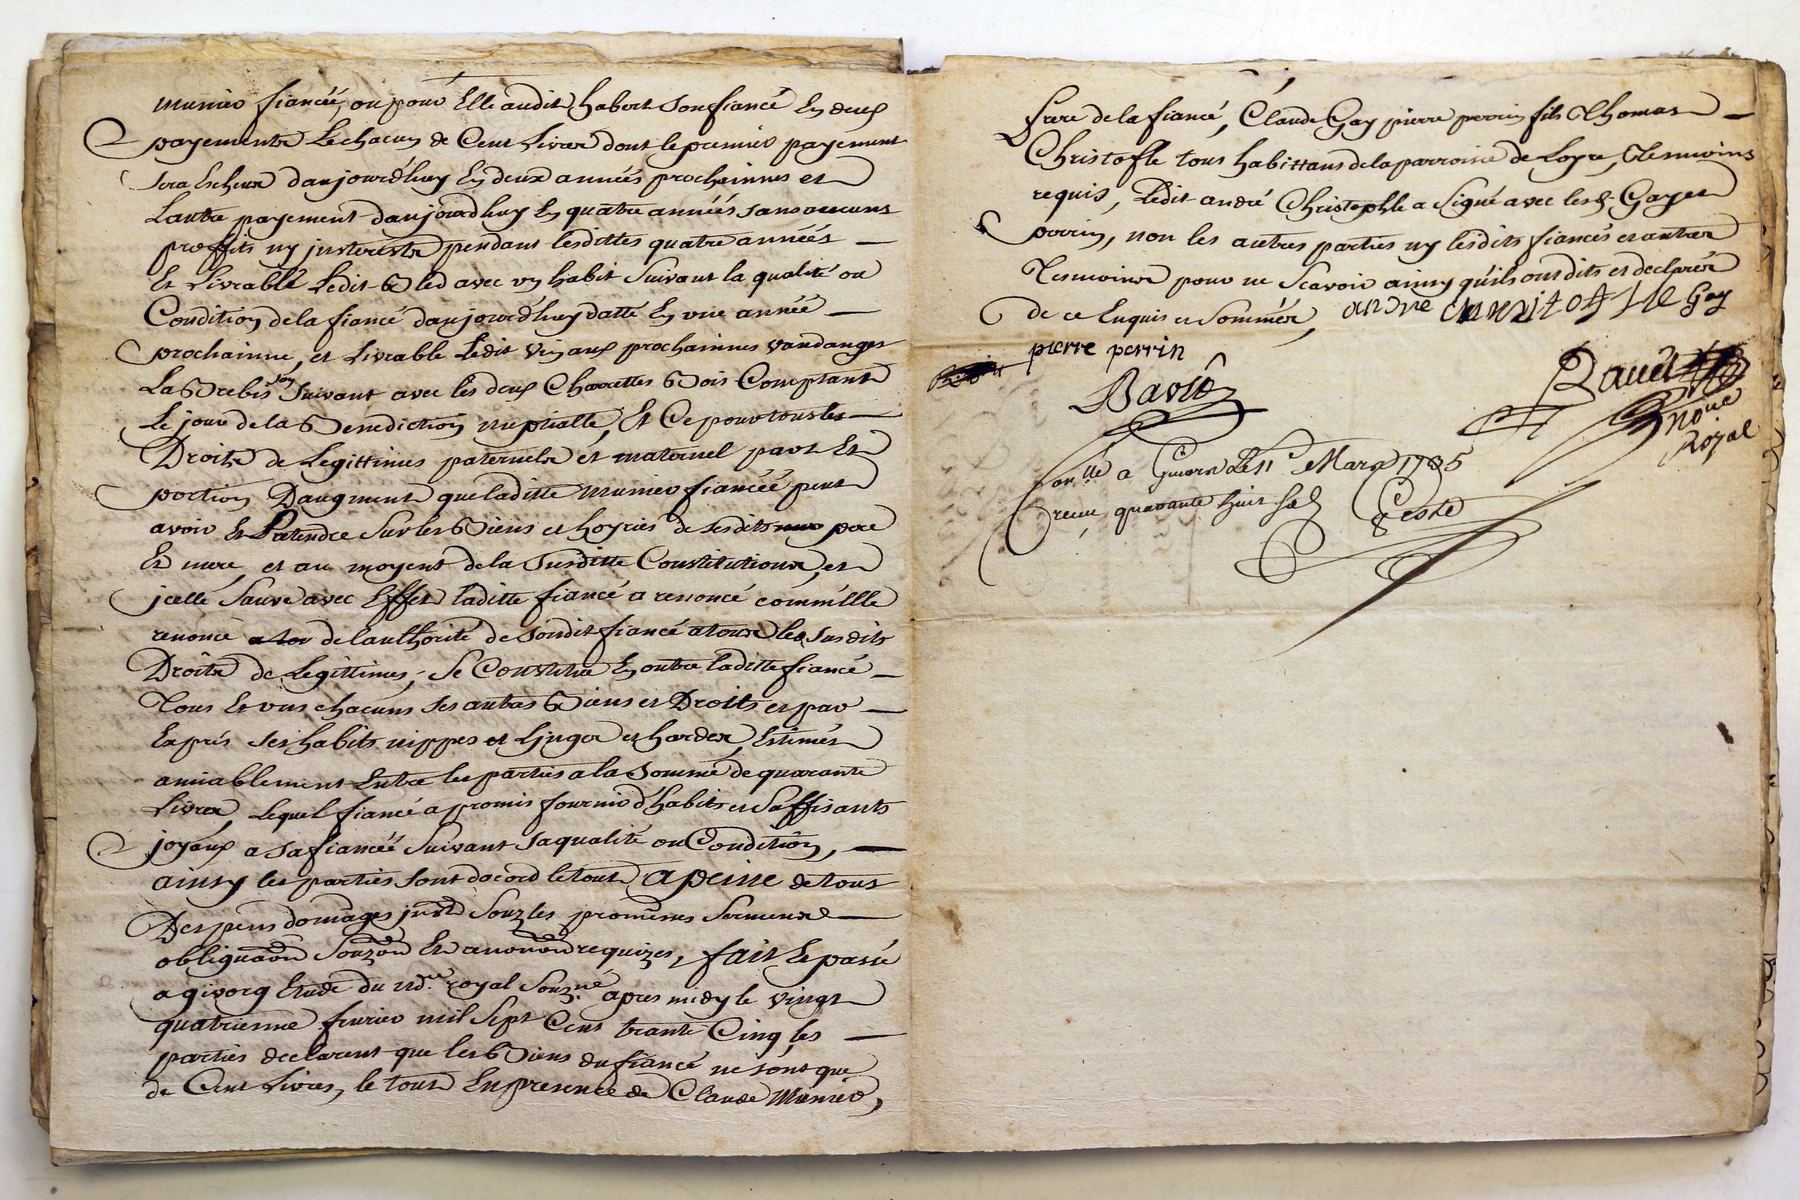 munier fiancéé, ou pour Elle audit habert son fiancé En deux
payements Le chacun de Cent Livres dont le premier payement
sera Escheux daujourdhuy En deux années prochainnes et
Lautre payement daujourdhuy En quatre années sans aucuns
proffits ny jnterests pendant lesdittes quatre années
Et Livrable Ledit Bled avec un habit suivant la qualité ou
Condition de la fiancé daujourdhuy datte En une année
prochainne, et Livrable Ledit vin aux prochainnes vandanges
La Brebis son suivant avec les deux Charrettes Bois Comptant
Le jour de la Benediction nuptialle, Et Ce pour tous les
Droits de Legittimes paternels et maternel part Et
portion Daugment que laditte Munier fiancéé peut
avoir Et Pretendre sur les Biens et hoyries de sesdits pere
Et mere, et au moyent de la susditte Constitutions, et
jcelle sauve avec Effet laditte fiancé a renoncé comm'Elle
renonce de lauthorité de sondit fiancé a tous les susdits
Droits de Legittimes, se Constitue En outre laditte fiancé
Tous Et uns chacuns ses autres Biens et Droits et par
Exprés ses habits nippes et Linges et hardes, Estimés
amiablement Entre les parties a la somme de quarante
Livres, Lequel fiancé a promis fournir d'habits et saffisants
joyaux a sa fiancéé suivant sa qualité ou Condition,
ainsy les parties sont dacord le tout a peine de tous
Despens domages jnts souz les promesses serments
obligaaon et requizes, fait Et passé
a givorq Etude du nore royal souzné apres midy le vingt
quatrienne fevrier mil sept Cent trante Cinq, les
parties declarent que les Biens du fiancé ne sont que
de Cent Livres, le tout En presence de Claude Munier,
frere de la fiancé, Claude Gay pierre perrin fils Thomas
Christofle tous habittans de la parroisse de Loyre, Tesmoins
requis, Ledit andré Christophle a signé avec lesd. Gay et
perrin, non les autres parties ny lesdits fiancés et autres
Tesmoins pour ne scavoir ainsy quils ont dits et declarés
de ce Enquis et Sommés, andre Gay
pierre perrin
Bavet
Bavet
nore
Royal
Conlle a Givors Le 11e Mars 1735
receu quarante huit sols